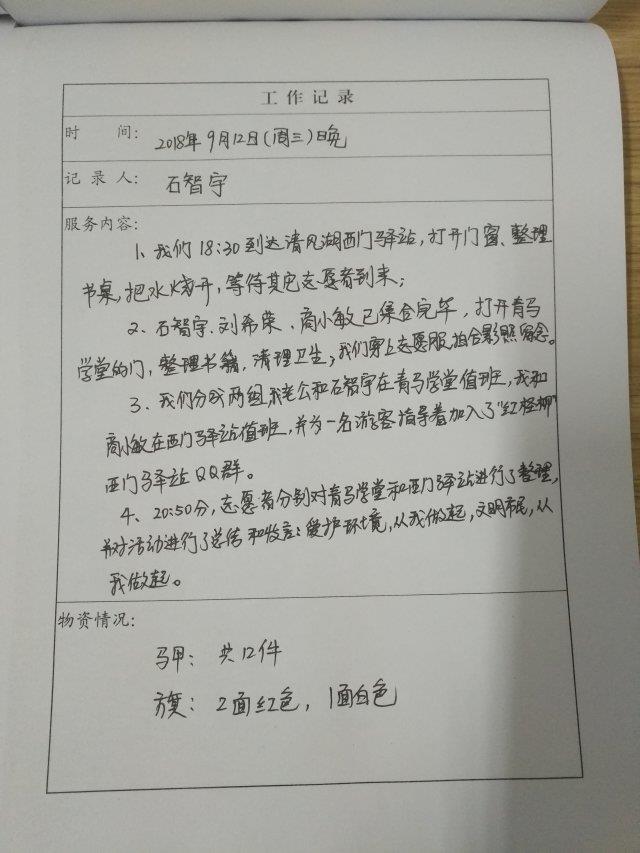 工作记录
时 间: 2018年9月12日(周三)晚
记录人: 石智宇
服务内容:
1、我们18:30到达清风湖西门驿站,打开门窗、整理
书桌,把水烧开,等待其它志愿者到来;
2、石智宇、刘希荣、商小敏已集合完毕,打开青马
学堂的门,整理书籍,清理卫生;我们穿上志愿服,拍合影照留念。
3、我们分成两组,我老公和石智宇在青马学堂值班,我和
商小敏在西门驿站值班,并为一名游客指导着加入了“红柽柳”
西门驿站QQ群。
4、20:50分,志愿者分别对青马学堂和西门驿站进行了整理,
并对活动进行了总结和发言:爱护环境,从我做起,文明市民,从
我做起。
物资情况:
马甲: 共12件
旗: 2面红色, 1面白色